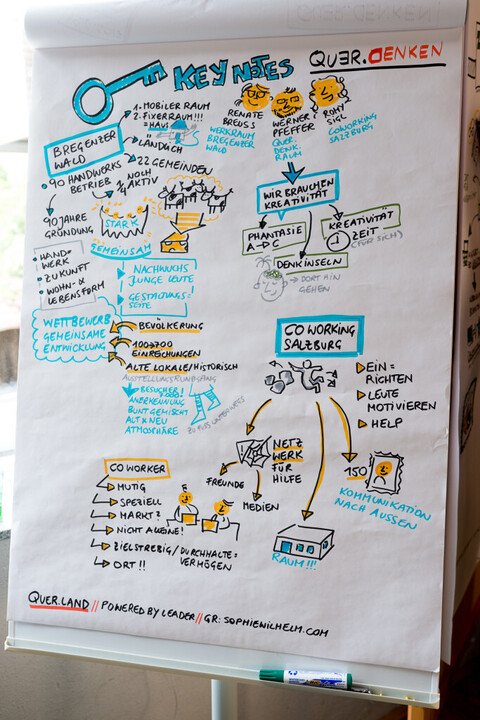 QUER.DENKEN
KEY NOTES
1. MOBILER RAUM
2. FIXERRAUM!!!
= HAUS
LÄNDLICH
BREGENZER
WALD
22 GEMEINDEN
90 HANDWERKS
BETRIEB
NOCH
AKTIV
90 JAHRE
GRÜNDUNG
STARK
GEMEINSAM
HAND=
WERK
ZUKUNFT
WOHN- &
LEBENSFORM
NACHWUCHS
JUNGE LEUTE
GESTALTUNGS=
WETTBEWERB
GEMEINSAME
ENTWICKLUNG
BEVÖLKERUNG
EINREICHUNGEN
ALTE LOKALE/HISTORISCH
AUSSTELLUNGSRUNDGANG
BESUCHER
ANERKENNUNG
BUNT GEMISCHT
ALT & NEU
ATMOSPHÄRE
ZU FUSS UNTERWEGS
RENATE
BREUSS
WERKRAUM
BREGENZER
WALD
WERNER
PFEFFER
QUER
DENK.
RAUM
ROMY
SIGL
COWORKING
SALZBURG
WIR BRAUCHEN
KREATIVITÄT
PHANTASIE
A→C
KREATIVITÄT
ZEIT
(FÜR SICH)
DENKINSELN
DORT HIN
GEHEN
COWORKING
SALZBURG
EIN=
RICHTEN
LEUTE
MOTIVIEREN
HELP
NETZ
WERK
FÜR
HILFE
FREUNDE
MEDIEN
150
KOMMUNIKATION
NACH AUSSEN
RAUM!!!
COWORKER
MUTIG
SPEZIELL
MARKT?
NICHT ALLEINE!
ZIELSTREBIG/DURCHHALTE=
VERMÖGEN
ORT!!
QUER.LAND // POWERED BY LEADER // GR: SOPHIENILHELM.COM